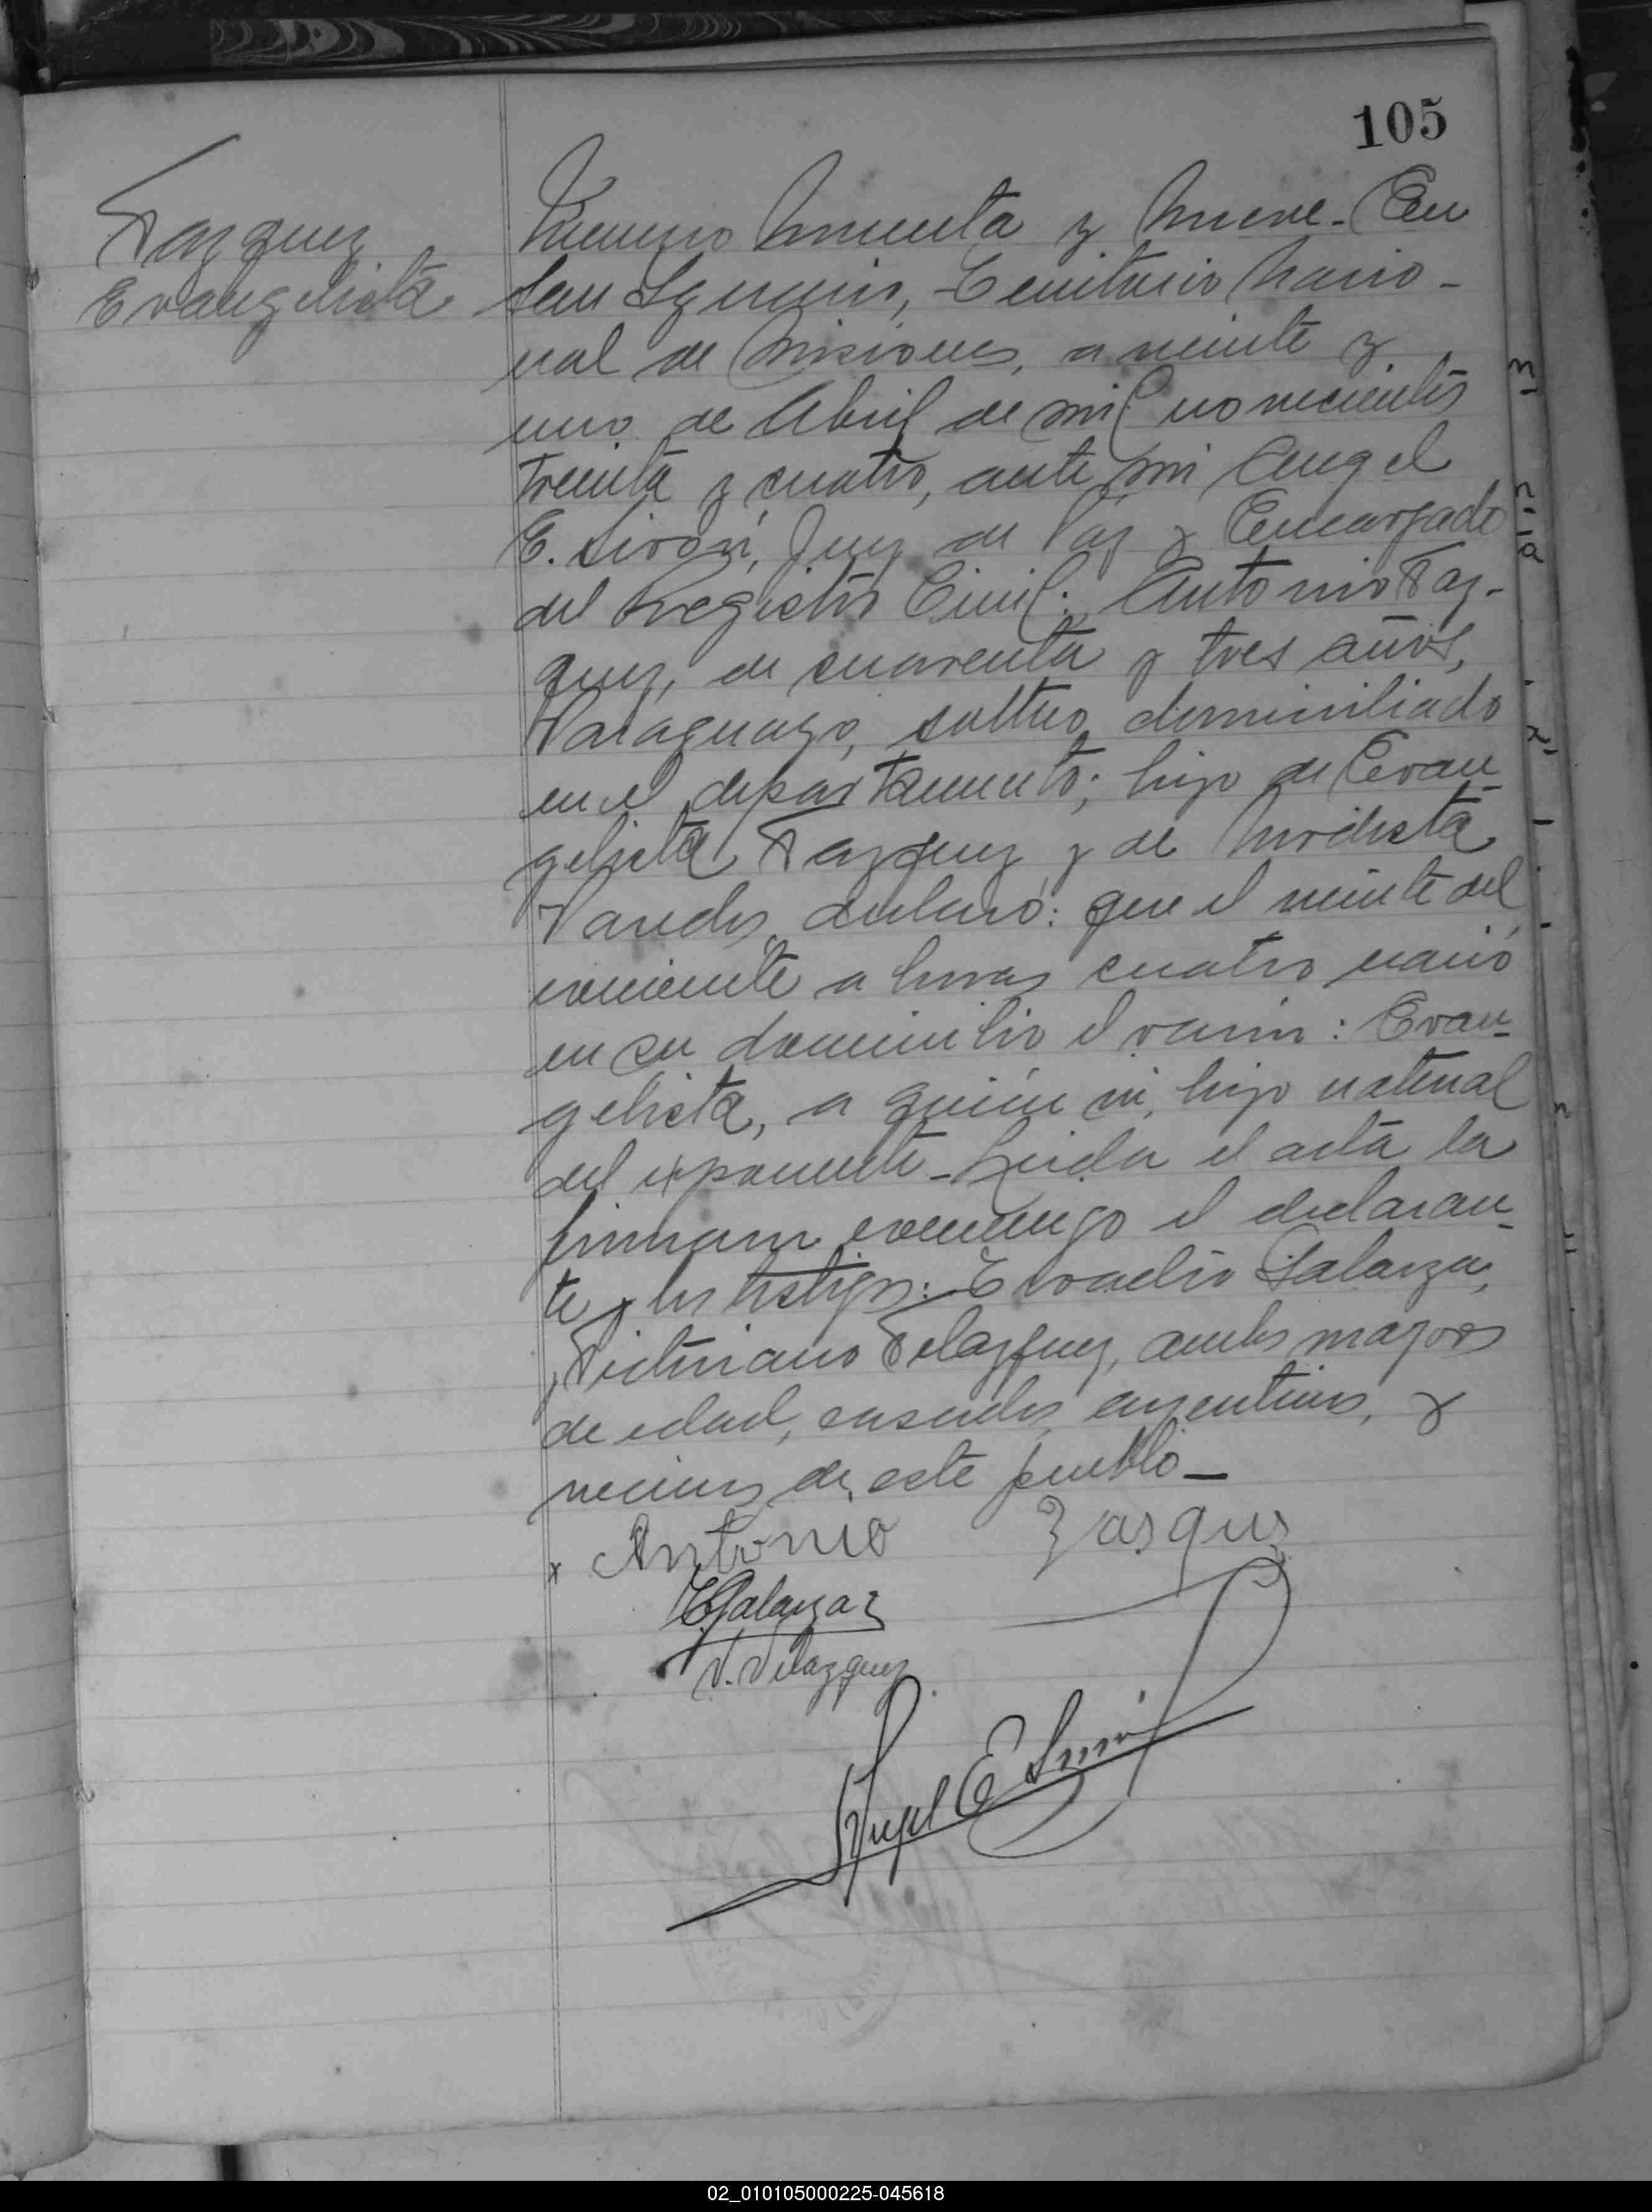 105
Vazquez
Evangelista
Numero Noventa y Nueve - En
San Ignacio, Territorio Nacio-
nal de Misiones, a veinte y
uno de Abril de mil novecientos
treinta y cuatro, ante mi Angel
E. Juez de Paz y Encargado
del Registro Civil: Antonio Vaz-
quez, de cuarenta y tres años,
Paraguayo, soltero, domiciliado
en el departamento; hijo de Evan-
gelista Vazquez y de Modesta
Paredes, declaró: que el veinte del
corriente a horas cuatro nació
en su domicilio el varón: Evan-
gelista, a quién vi, hijo natural
del exponente - Leida el acta la
firmaron conmigo el declaran-
te y los testigos: Evaclio Galarza,
y Victoriano Velazquez, ambos mayores
de edad, casados, argentinos, y
vecinos de este pueblo -
x Antonio Vasquz
E Galarza
V. Velazquez
Angel E
02_010105000225-045618